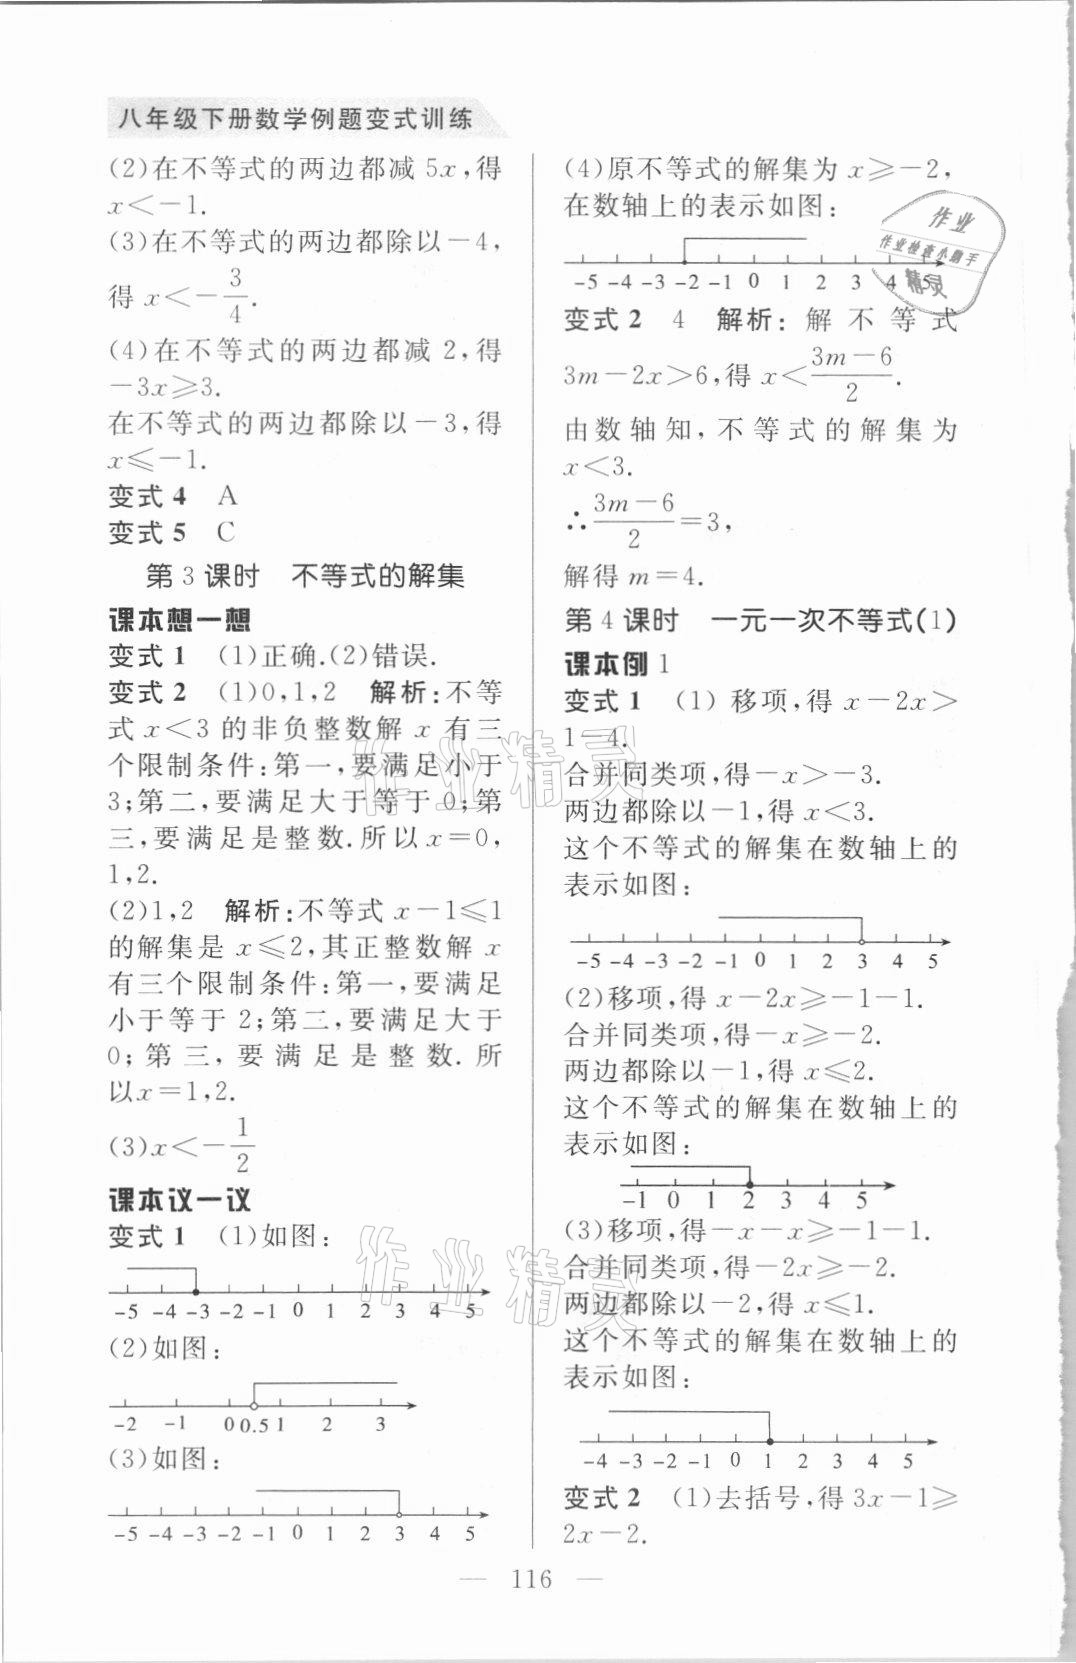 八年级下册数学例题变式训练
(2)在不等式的两边都减 5x,得
x<-1.
(3)在不等式的两边都除以-4,
得 x<-3/4.
(4)在不等式的两边都减 2,得
-3x≥3.
在不等式的两边都除以-3,得
x≤-1.
变式 4 A
变式 5 C
第 3 课时 不等式的解集
课本想一想
变式 1 (1)正确.(2)错误.
变式 2 (1)0,1,2 解析:不等
式 x<3 的非负整数解 x 有三
个限制条件:第一,要满足小于
3;第二,要满足大于等于 0;第
三,要满足是整数.所以 x=0,
1,2.
(2)1,2 解析:不等式 x-1≤1
的解集是 x≤2,其正整数解 x
有三个限制条件:第一,要满足
小于等于 2;第二,要满足大于
0;第三,要满足是整数.所
以x=1,2.
(3)x<-1/2
课本议一议
变式 1 (1)如图:
-5 -4 -3 -2 -1 0 1 2 3 4 5
(2)如图:
-2 -1 0 0.5 1 2 3
(3)如图:
-5 -4 -3 -2 -1 0 1 2 3 4 5
(4)原不等式的解集为 x≥-2,
在数轴上的表示如图:
-5 -4 -3 -2 -1 0 1 2 3 4 5
变式 2 4 解析:解不等式
3m-2x>6,得 x<(3m-6)/2.
由数轴知,不等式的解集为
x<3.
∴(3m-6)/2=3,
解得 m=4.
第 4 课时 一元一次不等式(1)
课本例 1
变式 1 (1)移项,得 x-2x>
1-4.
合并同类项,得-x>-3.
两边都除以-1,得 x<3.
这个不等式的解集在数轴上的
表示如图:
-5 -4 -3 -2 -1 0 1 2 3 4 5
(2)移项,得 x-2x≥-1-1.
合并同类项,得-x≥-2.
两边都除以-1,得 x≤2.
这个不等式的解集在数轴上的
表示如图:
-1 0 1 2 3 4 5
(3)移项,得-x-x≥-1-1.
合并同类项,得-2x≥-2.
两边都除以-2,得 x≤1.
这个不等式的解集在数轴上的
表示如图:
-4 -3 -2 -1 0 1 2 3 4 5
变式 2 (1)去括号,得 3x-1≥
2x-2.
— 116 —
作业
作业检查小助手
精灵
作业精灵
作业精灵